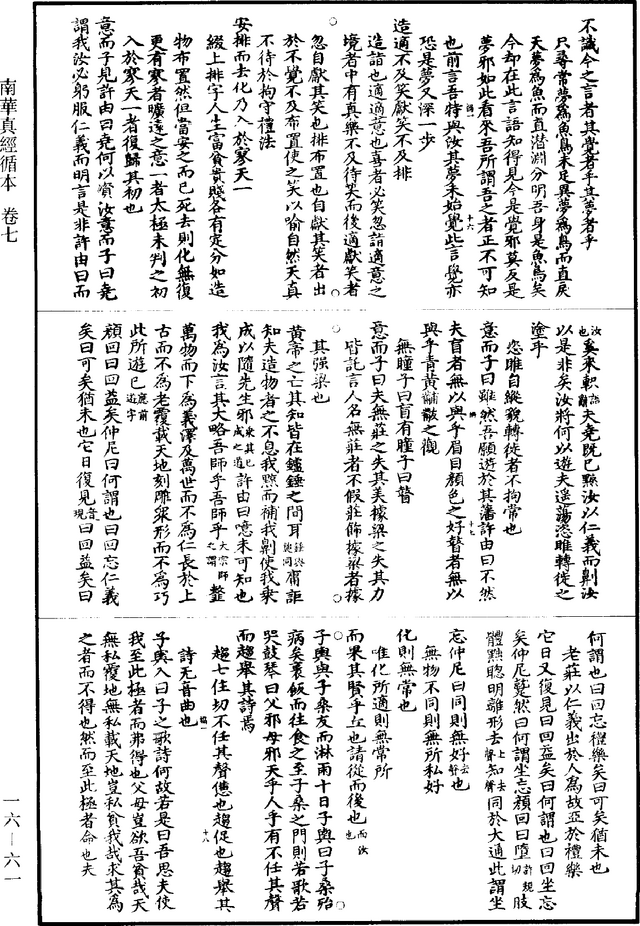 不識今之言者其覺者乎其夢者乎
只尋常夢為魚鳥未足異夢為鳥而直戾
天夢為魚而直潜淵分明吾身是魚鳥矣
今却在此言語知得見今是覺邪莫反是
夢邪如此看來吾所謂吾之者正不可知
也前言吾特與汝其夢未始覺此言覺亦
恐是夢又深一步
造適不及笑獻笑不及排
造詣也適適意也喜者必笑忽詣適意之
境者中有真樂不及待笑而後適獻笑者
忽自獻其笑也排布置也自獻其笑者出
於不覺不及布置使之笑以喻自然天真
不待於拘守禮法
安排而去化乃入於寥天一
綴上排字人生富貧貴賤各有定分如造
物布置然但當安之而已死去則化無復
更有寥者曠遠之意一者太極未判之初
入於寥天一者復歸其初也
意而子見許由曰堯何以資汝意而子曰堯
謂我汝必躬服仁義而明言是非許由曰而
汝也奚來軹語辭夫堯既已黥汝以仁義而劓汝
以是非矣汝將何以遊夫遥蕩恣睢轉徙之
塗乎
恣睢自縱貌轉徙者不拘常也
意而子曰雖然吾願遊於其藩許由曰不然
夫盲者無以與乎眉目顏色之好瞽者無以
與乎青黃黼黻之觀
無瞳子曰盲有瞳子曰瞽
意而子曰夫無莊之失其美據梁之失其力
皆託言人名無莊者不假莊飾據梁者據
其強梁也
黃帝之亡其知皆在鑪錘之間耳庸詎
知夫造物者之不息我黥而補我劓使我乘
成以隨先生邪許由曰噫未可知也
我為汝言其大略吾師乎吾師乎大宗師之謂𩐋
萬物而不為義澤及萬世而不為仁長於上
古而不為老覆載天地刻雕衆形而不為巧
此所遊已應前遊字
顏回曰回益矣仲尼曰何謂也曰回忘仁義
矣曰可矣猶未也它日復見音現曰回益矣曰
何謂也曰回忘禮樂矣曰可矣猶未也
老莊以仁義出於人為故亞於禮樂
它日又復見曰回益矣曰何謂也曰回坐忘
矣仲尼蹵然曰何謂坐忘顏回曰墮許規切肢
體黜聰明離形去上聲知去聲同於大通此謂坐
忘仲尼曰同則無好去聲也
無物不同則無所私好
化則無常也
唯化所適則無常所
而果其賢乎丘也請從而後也而汝也
子輿與子桑友而淋雨十日子輿曰子桑殆
病矣裹飯而往食之至子桑之門則若歌若
哭鼓琴曰父邪母邪天乎人乎有不任其聲
而趨舉其詩焉
趨七住切不任其聲憊也趨促也趨舉其
詩无音曲也
子輿入曰子之歌詩何故若是曰吾思夫使
我至此極者而弗得也父母豈欲吾貧哉天
無私覆地無私載天地豈私貧我哉求其為
之者而不得也然而至此極者命也夫
南華真經循本 卷七
一六—六一